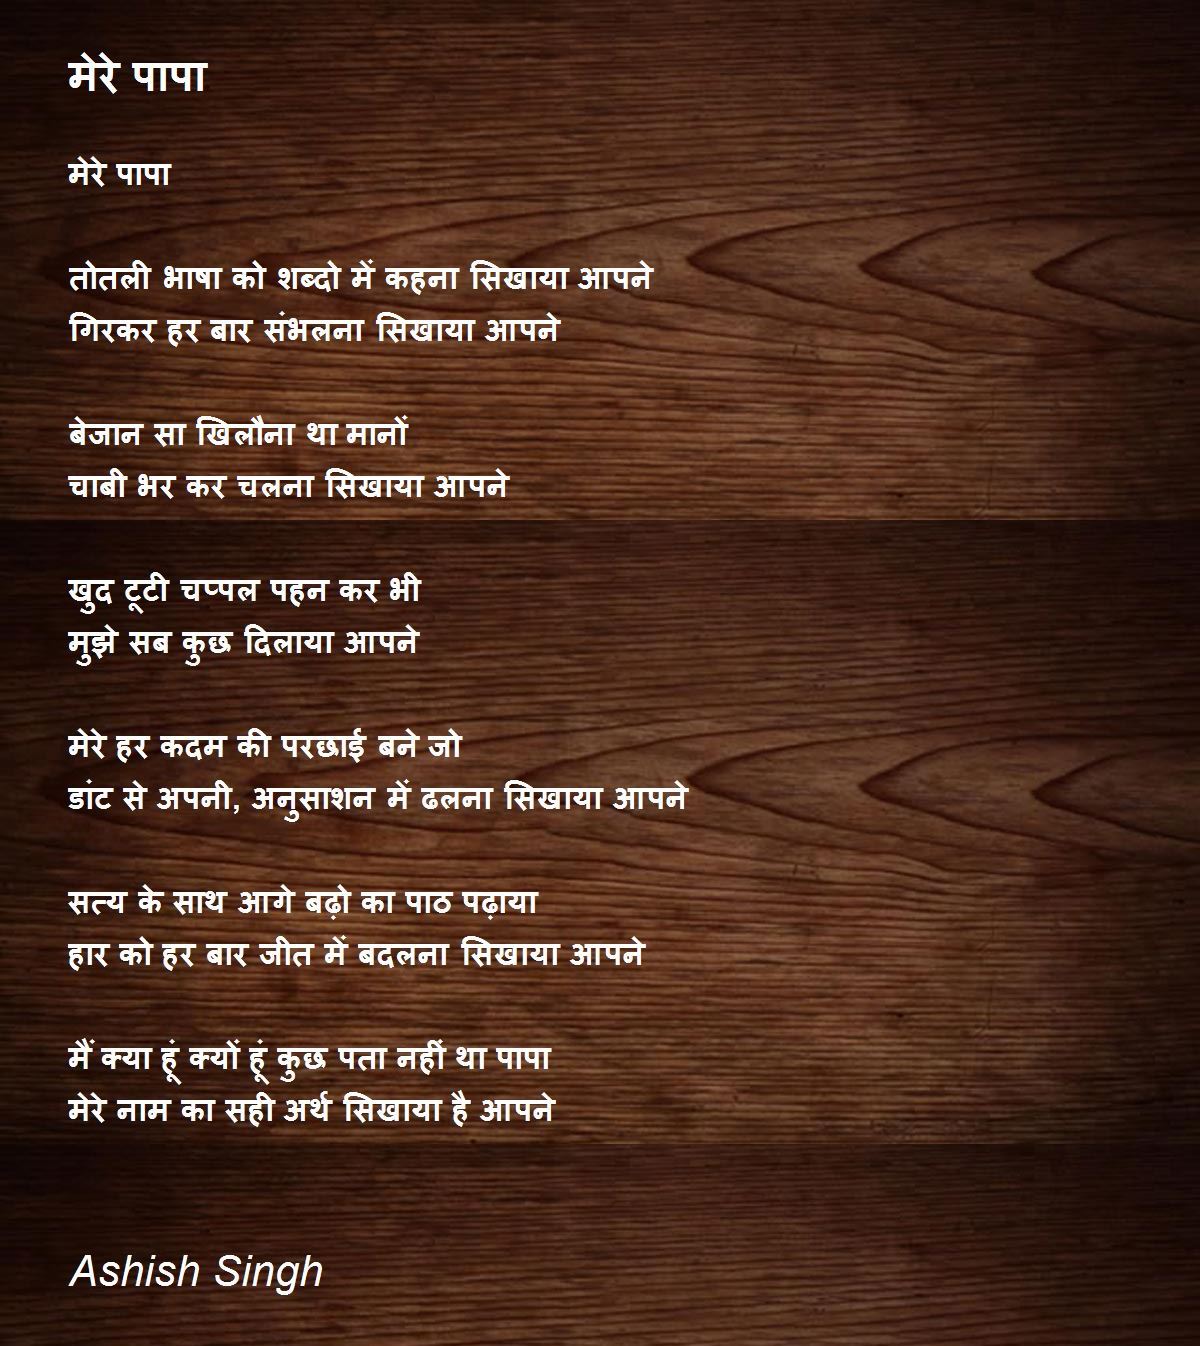 मेरे पापा
मेरे पापा
तोतली भाषा को शब्दो में कहना सिखाया आपने
गिरकर हर बार संभलना सिखाया आपने
बेजान सा खिलौना था मानों
चाबी भर कर चलना सिखाया आपने
खुद टूटी चप्पल पहन कर भी
मुझे सब कुछ दिलाया आपने
मेरे हर कदम की परछाई बने जो
डांट से अपनी, अनुसाशन में ढलना सिखाया आपने
सत्य के साथ आगे बढ़ो का पाठ पढ़ाया
हार को हर बार जीत में बदलना सिखाया आपने
मैं क्या हूं क्यों हूं कुछ पता नहीं था पापा
मेरे नाम का सही अर्थ सिखाया है आपने
Ashish Singh